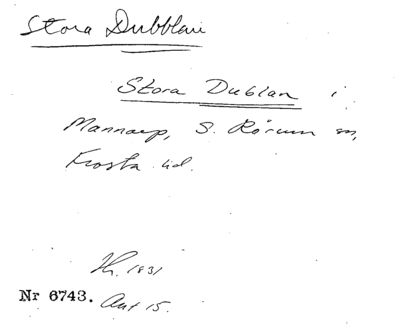 Stora Dubblan
Stora Dublan i
Mannarp, S. Rörum sn,
Frosta hd.
1931
Nr 6743. Ant 15.